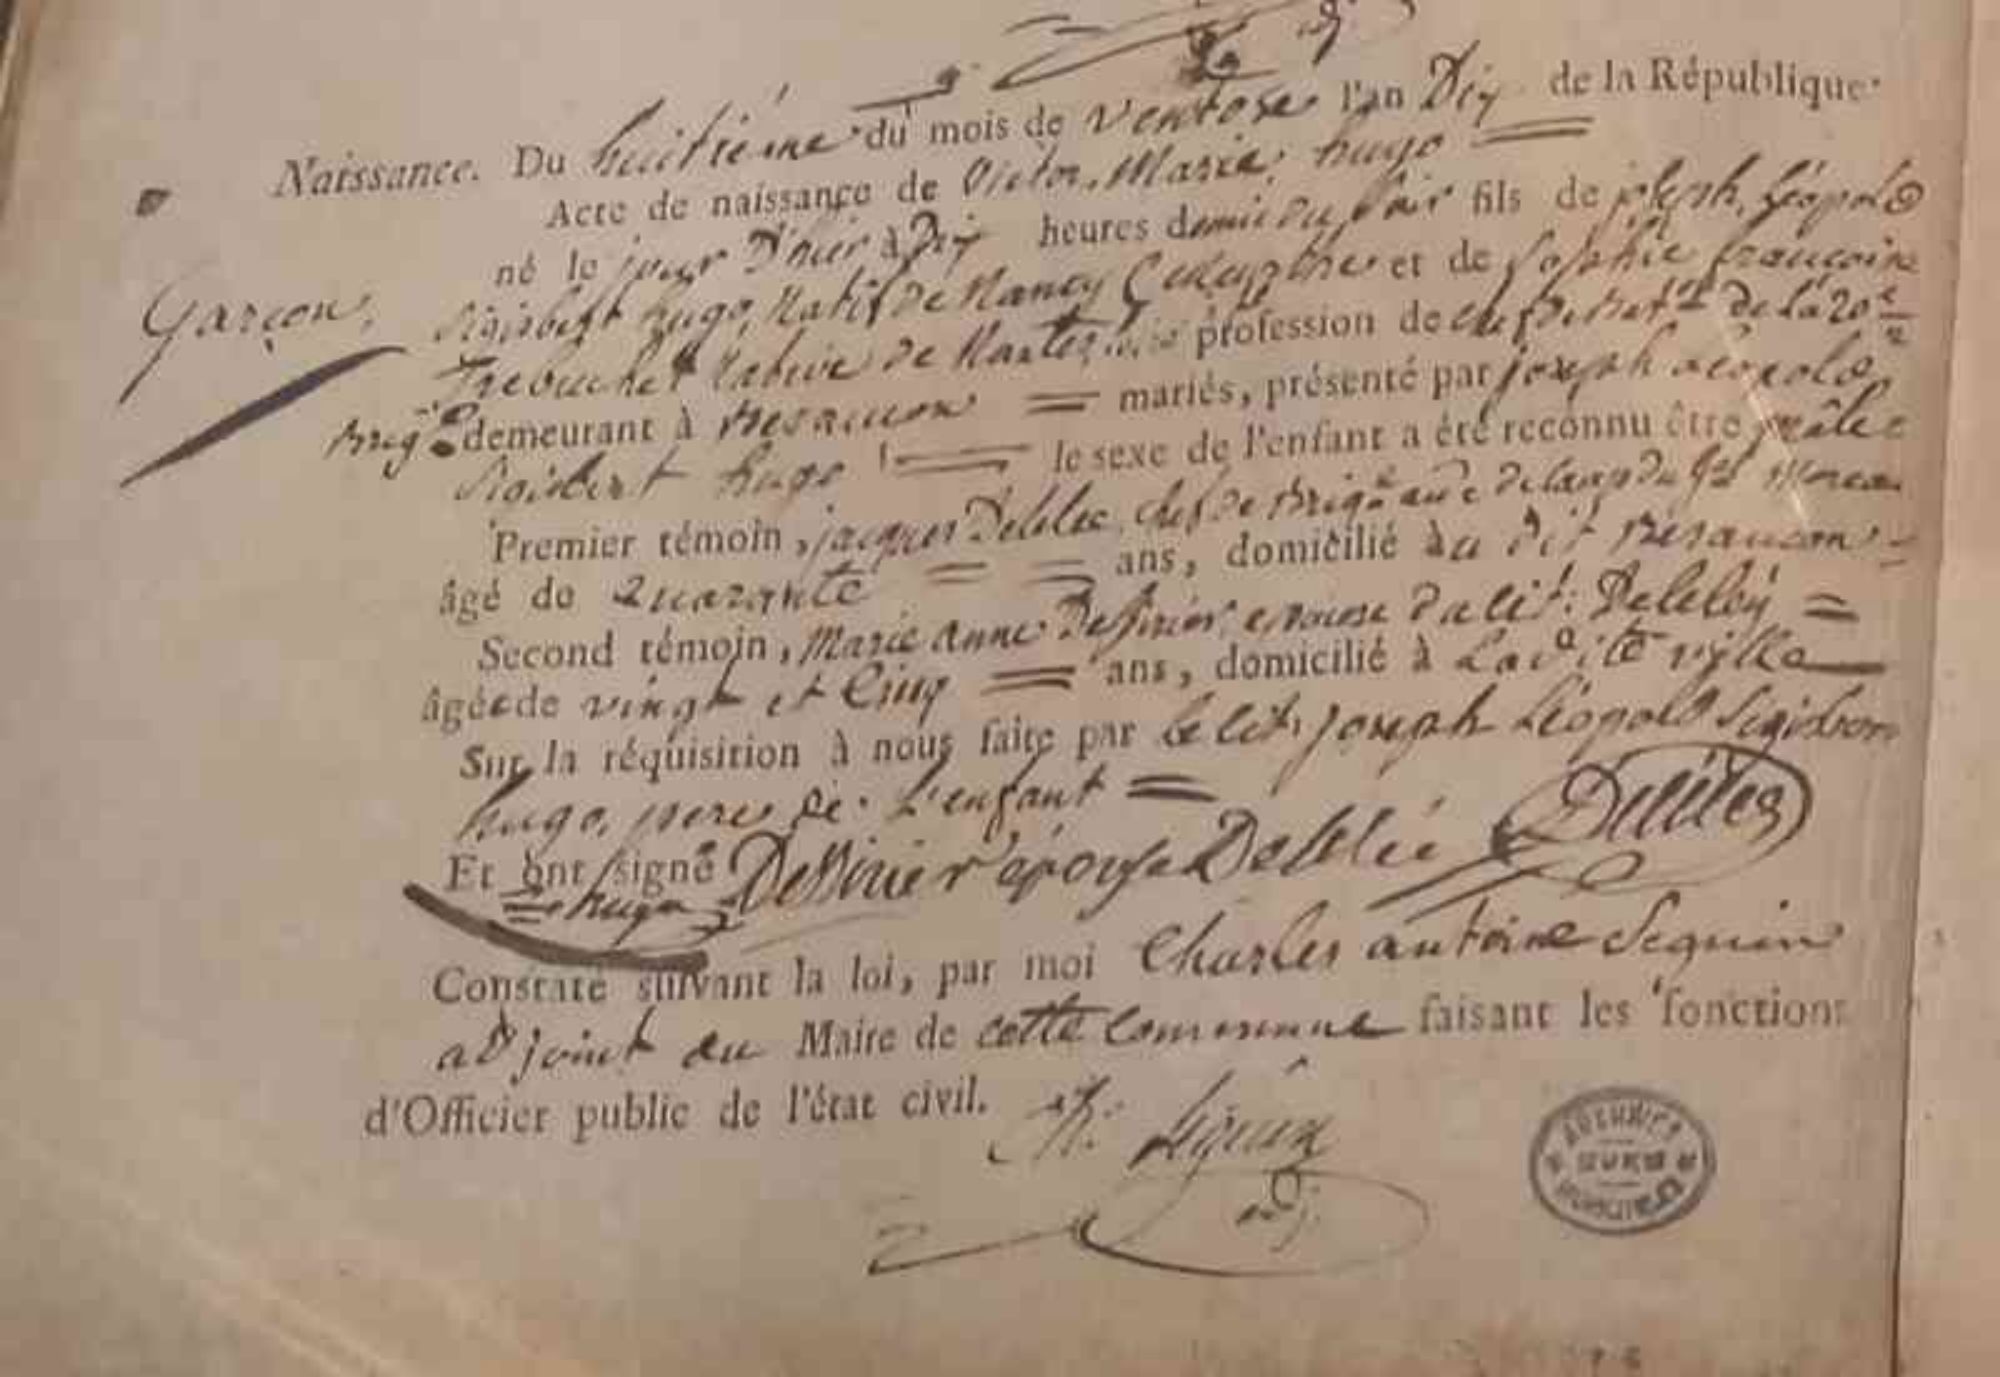 Naissance. Du huitième du mois de Ventose l'an Dix de la République
Acte de naissance de Victor, Marie, hugo
né le jour D'hier à Dix heures demie du soir fils de joseph, Léopold
Garçon,
Sigisbert hugo, Natif de Nancy (Meurthe) et de Sophie françoise
Trebuchet Native de Nantes profession de chef de Bat.on de la 20e
Brig.e demeurant à Besancon mariés, présenté par joseph Léopold
Sigisbert hugo le sexe de l'enfant a été reconnu être mâle
Premier témoin, jacques Delelée chef de Brig.e aide de camp du g.al Moreau
âgé de Quarante ans, domicilié à u dit Besancon
Second témoin, Marie anne Dessirier epouse du cit: Delelée
âgée de vingt et Cinq ans, domicilié à Ladite ville
Sur la réquisition à nous faite par le cit: joseph Léopold Sigisbert
hugo, pere de L'enfant
Et ont signé Dessirier épouse Delelée Delelée
hugo
Constaté suivant la loi, par moi Charles antoine Seguin
adjoint au Maire de cette Commune faisant les fonctions
d'Officier public de l'état civil.
Ch. Seguin
adj.